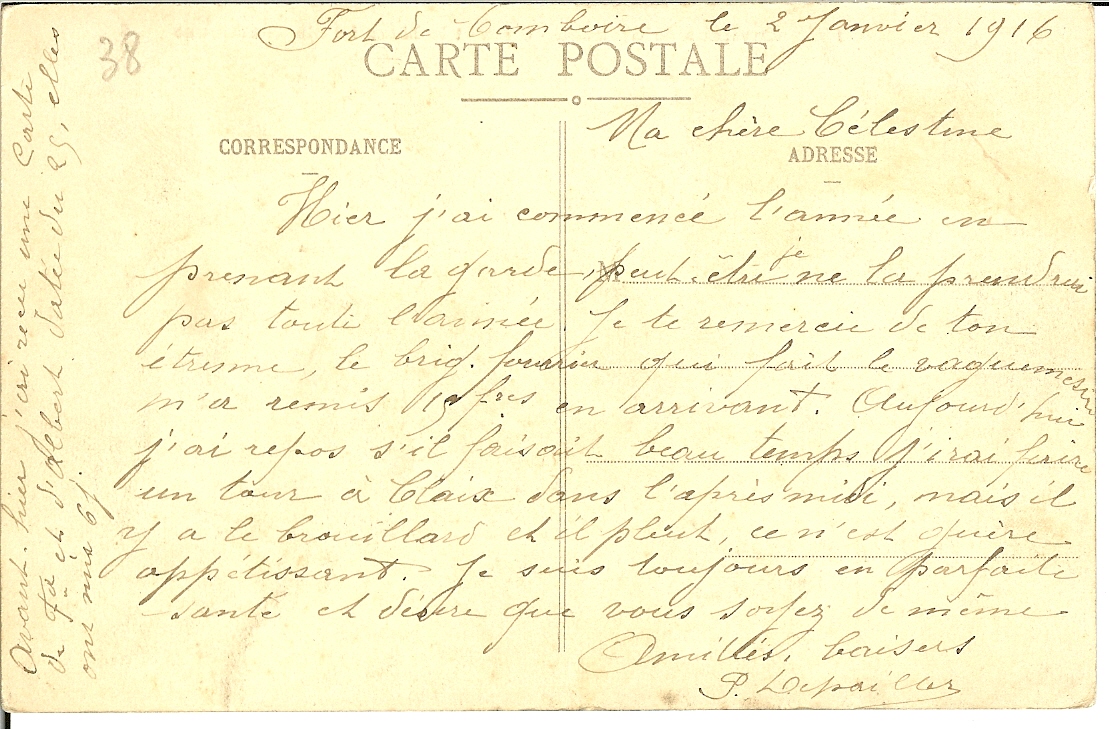 38
Fort de Comboire le 2 Janvier 1916
CARTE POSTALE
CORRESPONDANCE
ADRESSE
Ma chère Célestine
Hier j'ai commencé l'année en
prenant la garde, peut-être je ne la prendrai
pas toute l'année. Je te remercie de ton
étrenne, le brig. fourrier qui fait le vaguemestre
m'a remis 15 frcs en arrivant. Aujourd'hui
j'ai repos s'il faisait beau temps j'irai faire
un tour à Claix dans l'après midi, mais il
y a le brouillard et il pleut, ce n'est guère
appétissant. Je suis toujours en parfaite
santé et désire que vous soyez de même
Amitiés, baisers
P. Lepailler
Avant-hier j'ai reçu une Carte
de et d'Albert datée du 25, elles
ont mis 6 j.